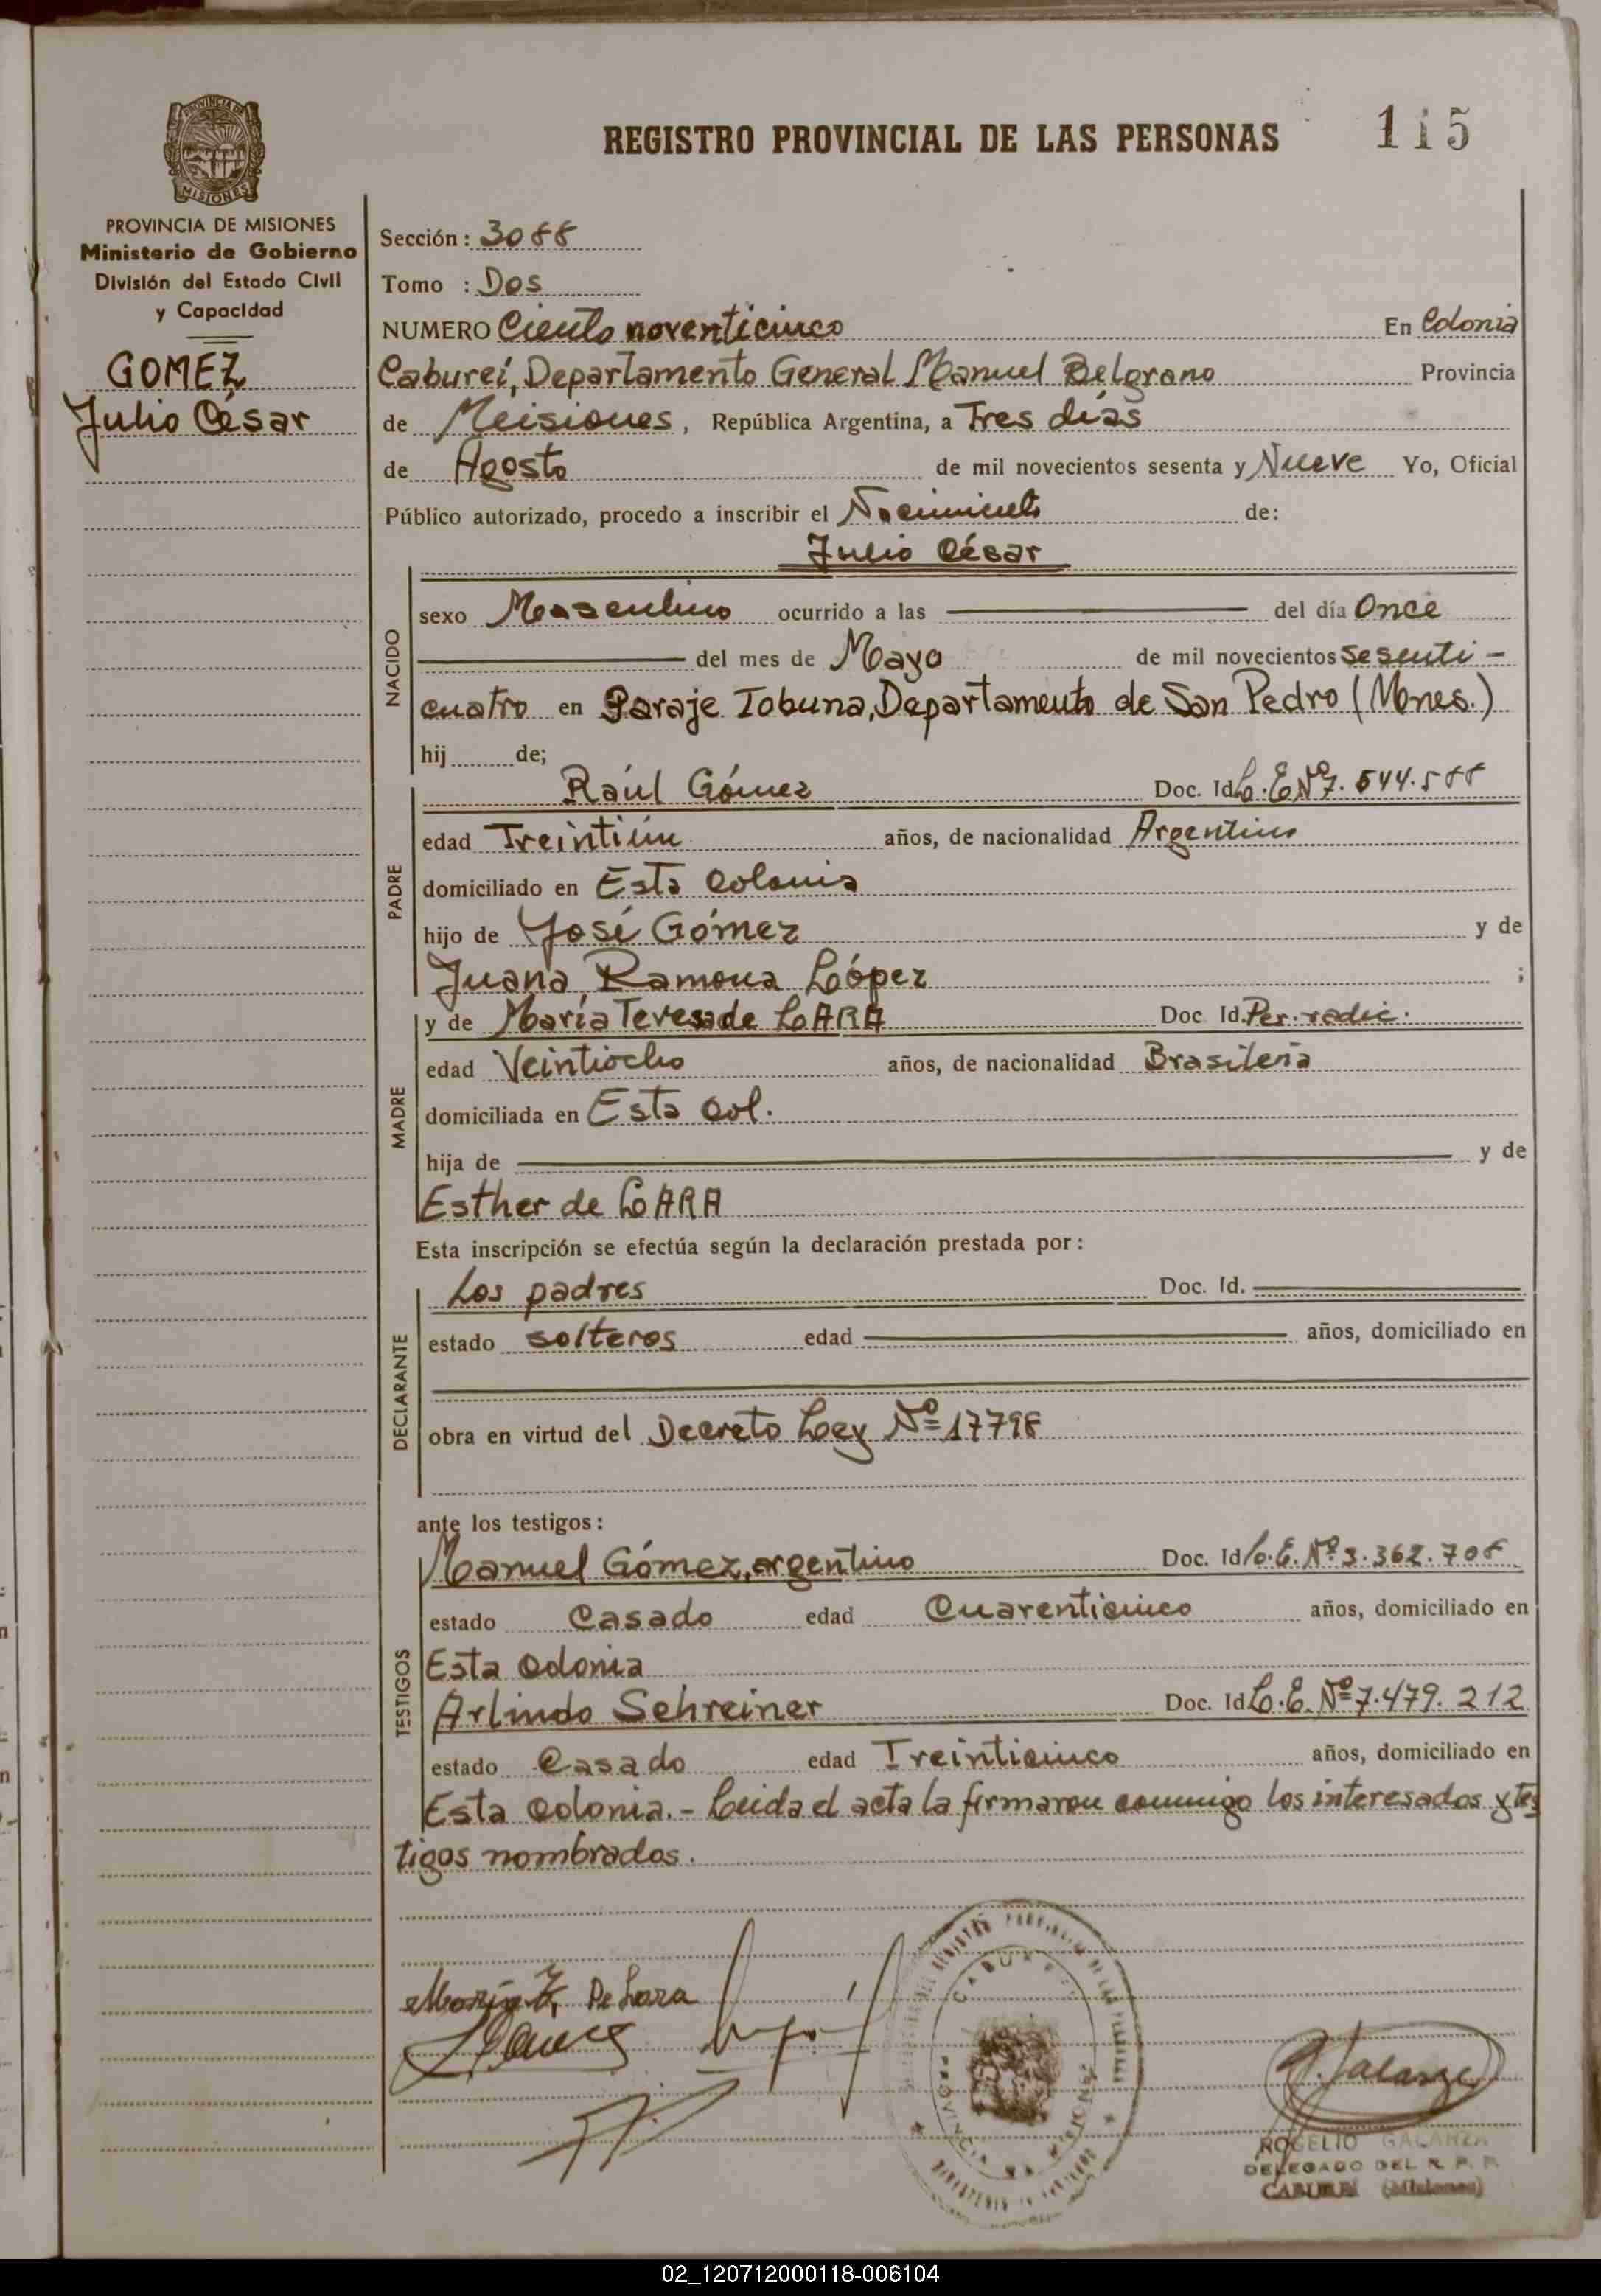 REGISTRO PROVINCIAL DE LAS PERSONAS
115
PROVINCIA DE
MISIONES
PROVINCIA DE MISIONES
Ministerio de Gobierno
División del Estado Civil
y Capacidad
GOMEZ
Julio César
Sección: 3088
Tomo : Dos
NUMERO Ciento noventicinco En Colonia
Caburei, Departamento General Manuel Belgrano Provincia
de Misiones, República Argentina, a Tres días
de Agosto de mil novecientos sesenta y Nueve Yo, Oficial
Público autorizado, procedo a inscribir el Nacimiento de:
Julio César
NACIDO
sexo Masculino ocurrido a las del día Once
del mes de Mayo de mil novecientos sesenti-
cuatro en Paraje Tobuna, Departamento de San Pedro (Mnes.)
hij de;
PADRE
Raúl Gómez Doc. Id L.E Nº 7.544.588
edad Treintiún años, de nacionalidad Argentino
domiciliado en Esta Colonia
hijo de José Gómez y de
Juana Ramona López ;
MADRE
y de María Teresa de LARA Doc Id. Per. radic.
edad Veintiocho años, de nacionalidad Brasileña
domiciliada en Esta Col.
hija de y de
Esther de LARA
Esta inscripción se efectúa según la declaración prestada por:
DECLARANTE
Los padres Doc. Id.
estado solteros edad años, domiciliado en
obra en virtud del Decreto Ley Nº 17798
ante los testigos:
TESTIGOS
Manuel Gómez, argentino Doc. Id L.E. Nº 3.362.708
estado Casado edad Cuarenticinco años, domiciliado en
Esta Colonia
Arlindo Schreiner Doc. Id L.E. Nº 7.479.212
estado Casado edad Treinticinco años, domiciliado en
Esta Colonia.- Leida el acta la firmaron conmigo los interesados y tes
tigos nombrados.
María T. De Lara
R. Galarza
ROGELIO GALARZA
DELEGADO DEL R. P. P.
CABUREI (Misiones)
02_120712000118-006104